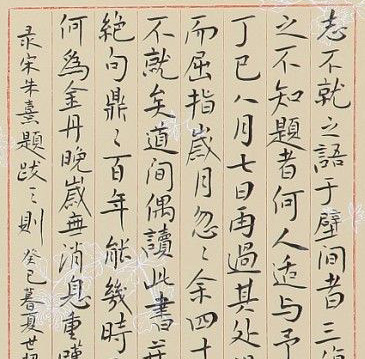 志不就之語于壁间者三復
之不知題者何人适与予
丁巳八月七日再過其处
而屈指歲月忽〻余四十
不就矣道间偶讀此書并
絕句鼎〻百年能幾時
何為金丹晚歲無消息重嘆
录宋朱熹題跋三則 癸巳暮夏世